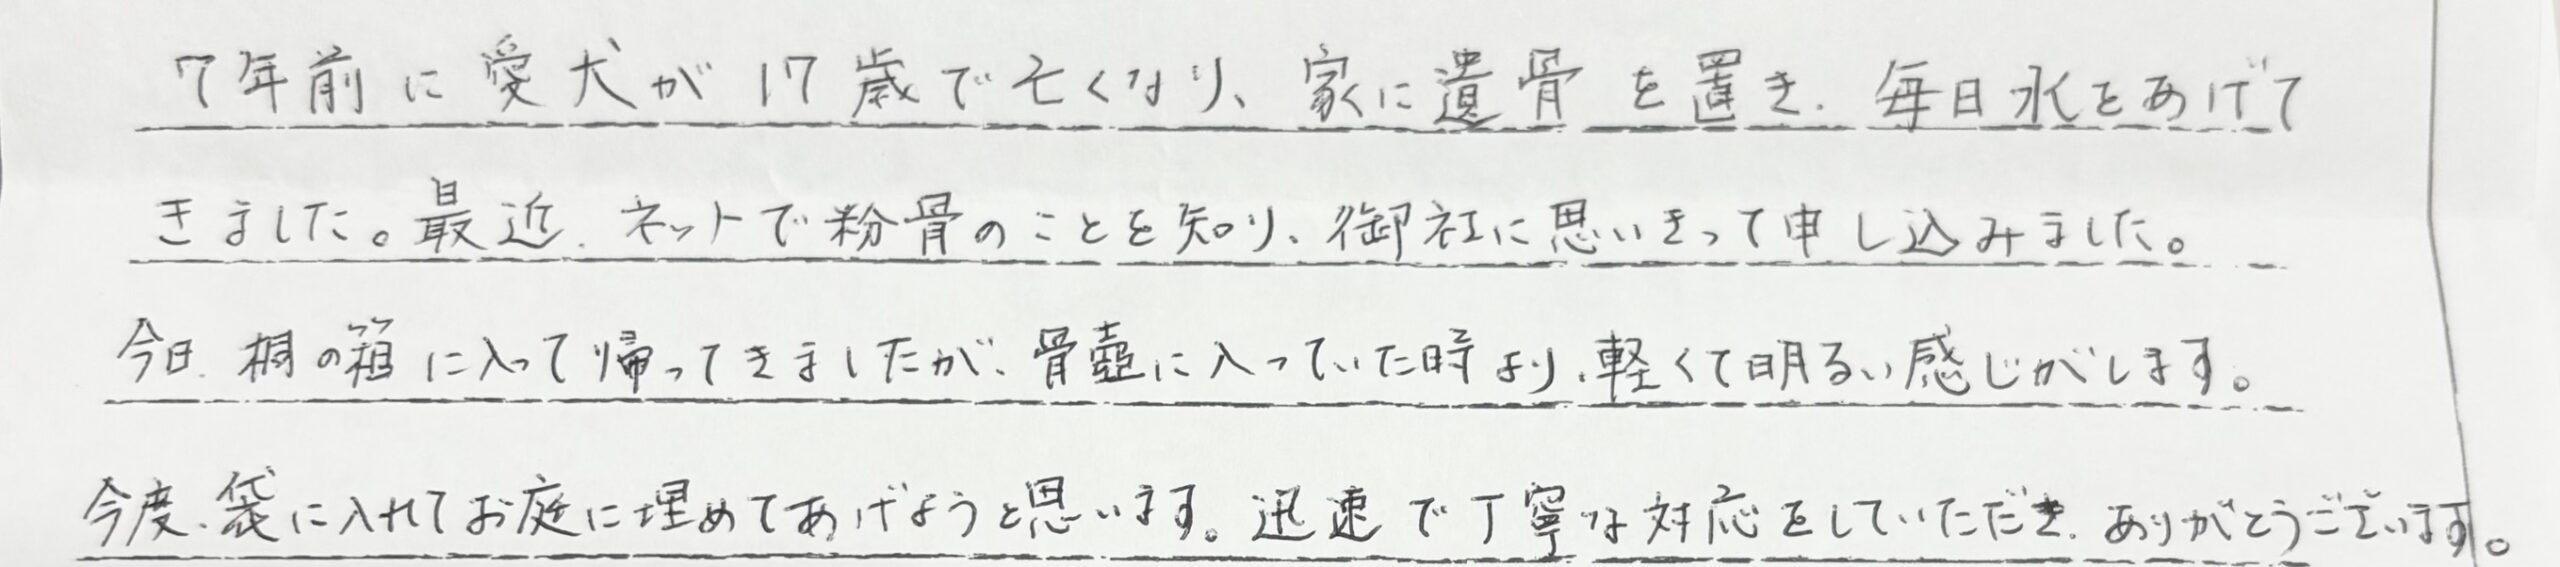 7年前に愛犬が17歳で亡くなり、家に遺骨を置き、毎日水をあげて
きました。最近、ネットで粉骨のことを知り、御社に思いきって申し込みました。
今日、桐の箱に入って帰ってきましたが、骨壺に入っていた時より、軽くて明るい感じがします。
今度、袋に入れてお庭に埋めてあげようと思います。迅速で丁寧な対応をしていただき、ありがとうございます。